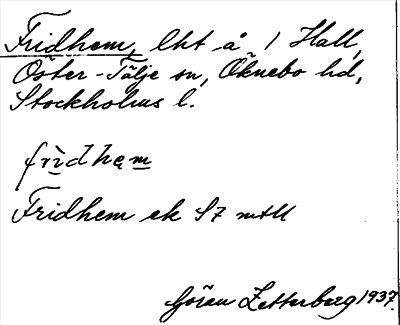 Fridhem, lht å 1 Hall,
Öster-Tälje sn, Öknebo hd,
Stockholms l.
fridhem
Fridhem ek 57 mtl
Göran Zetterberg 1937.